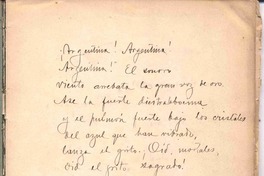 ¡Argentina! ¡Argentina!
¡Argentina! El sonoro
viento arrebata la gran voz de oro.
Ase la fuerte diestra la bocina
y el pulmón fuerte, bajo los cristales
del azul que han vibrado,
lanza el grito: ¡Oíd, mortales,
oíd el grito sagrado!